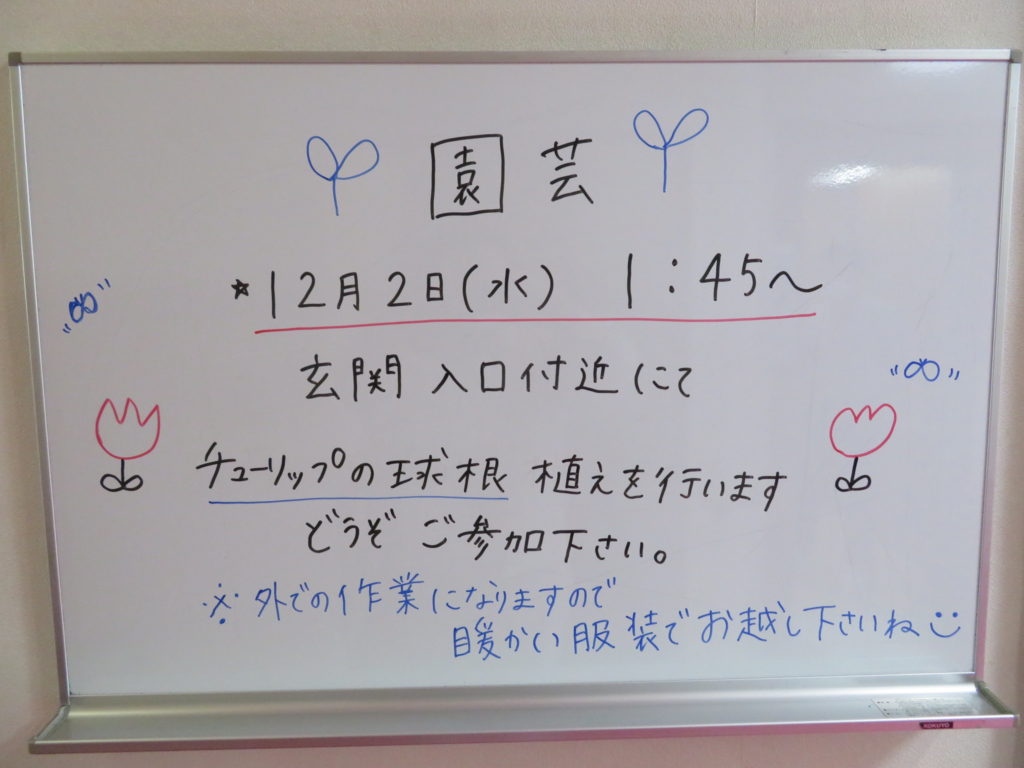 園芸
★12月2日(水) 1:45～
玄関 入口付近にて
チューリップの球根 植えを行います
どうぞ ご参加下さい。
※外での作業になりますので
暖かい服装でお越し下さいね
KOKUYO